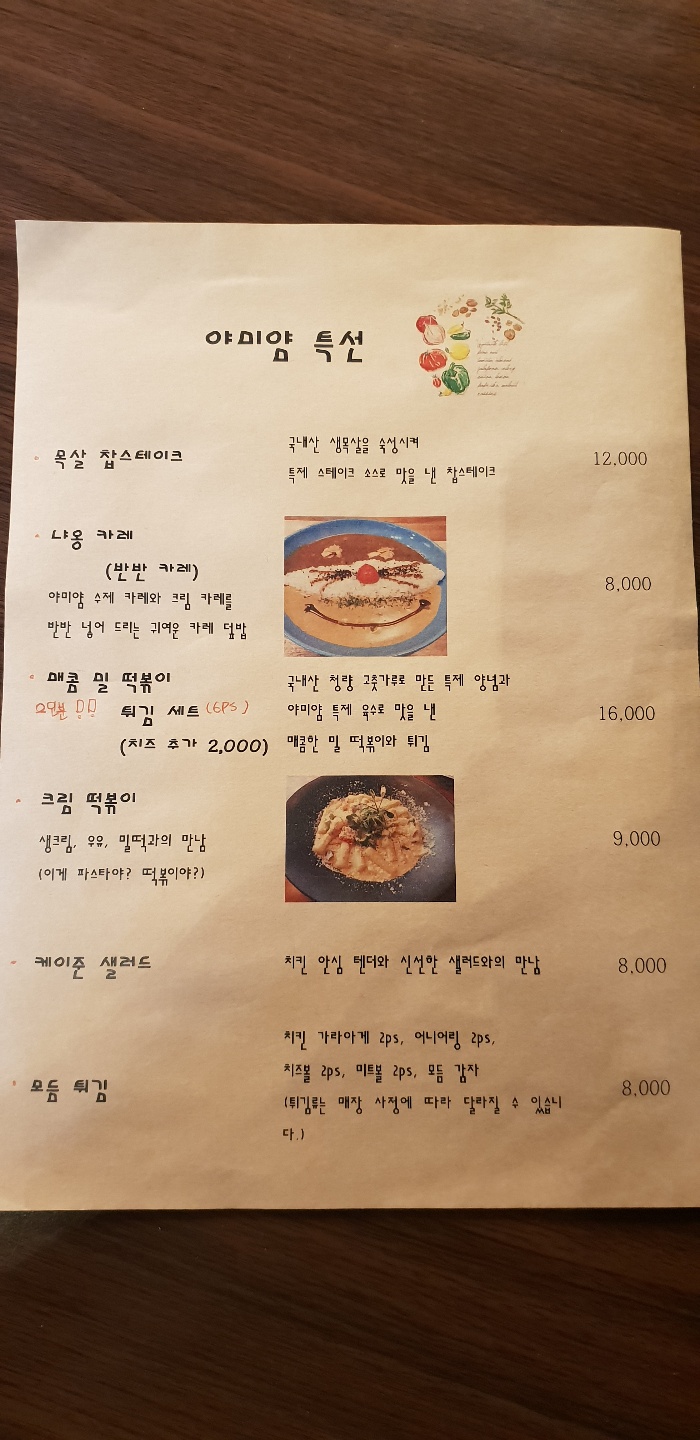 야미얌 특선
· 목살 찹스테이크
국내산 생목살을 숙성시켜
특제 스테이크 소스로 맛을 낸 찹스테이크
12,000
· 냐옹 카레
(반반 카레)
야미얌 수제 카레와 크림 카레를
반반 넣어 드리는 귀여운 카레 덮밥
8,000
· 매콤 밀 떡볶이
2인분 !! 튀김 세트 (6PS)
(치즈 추가 2,000)
국내산 청량 고춧가루로 만든 특제 양념과
야미얌 특제 육수로 맛을 낸
매콤한 밀 떡볶이와 튀김
16,000
· 크림 떡볶이
생크림, 우유, 밀떡과의 만남
(이게 파스타야? 떡볶이야?)
9,000
· 케이준 샐러드
치킨 안심 텐더와 신선한 샐러드와의 만남
8,000
· 모듬 튀김
치킨 가라아게 2ps, 어니어링 2ps,
치즈볼 2ps, 미트볼 2ps, 모듬 감자
(튀김류는 매장 사정에 따라 달라질 수 있습니
다.)
8,000